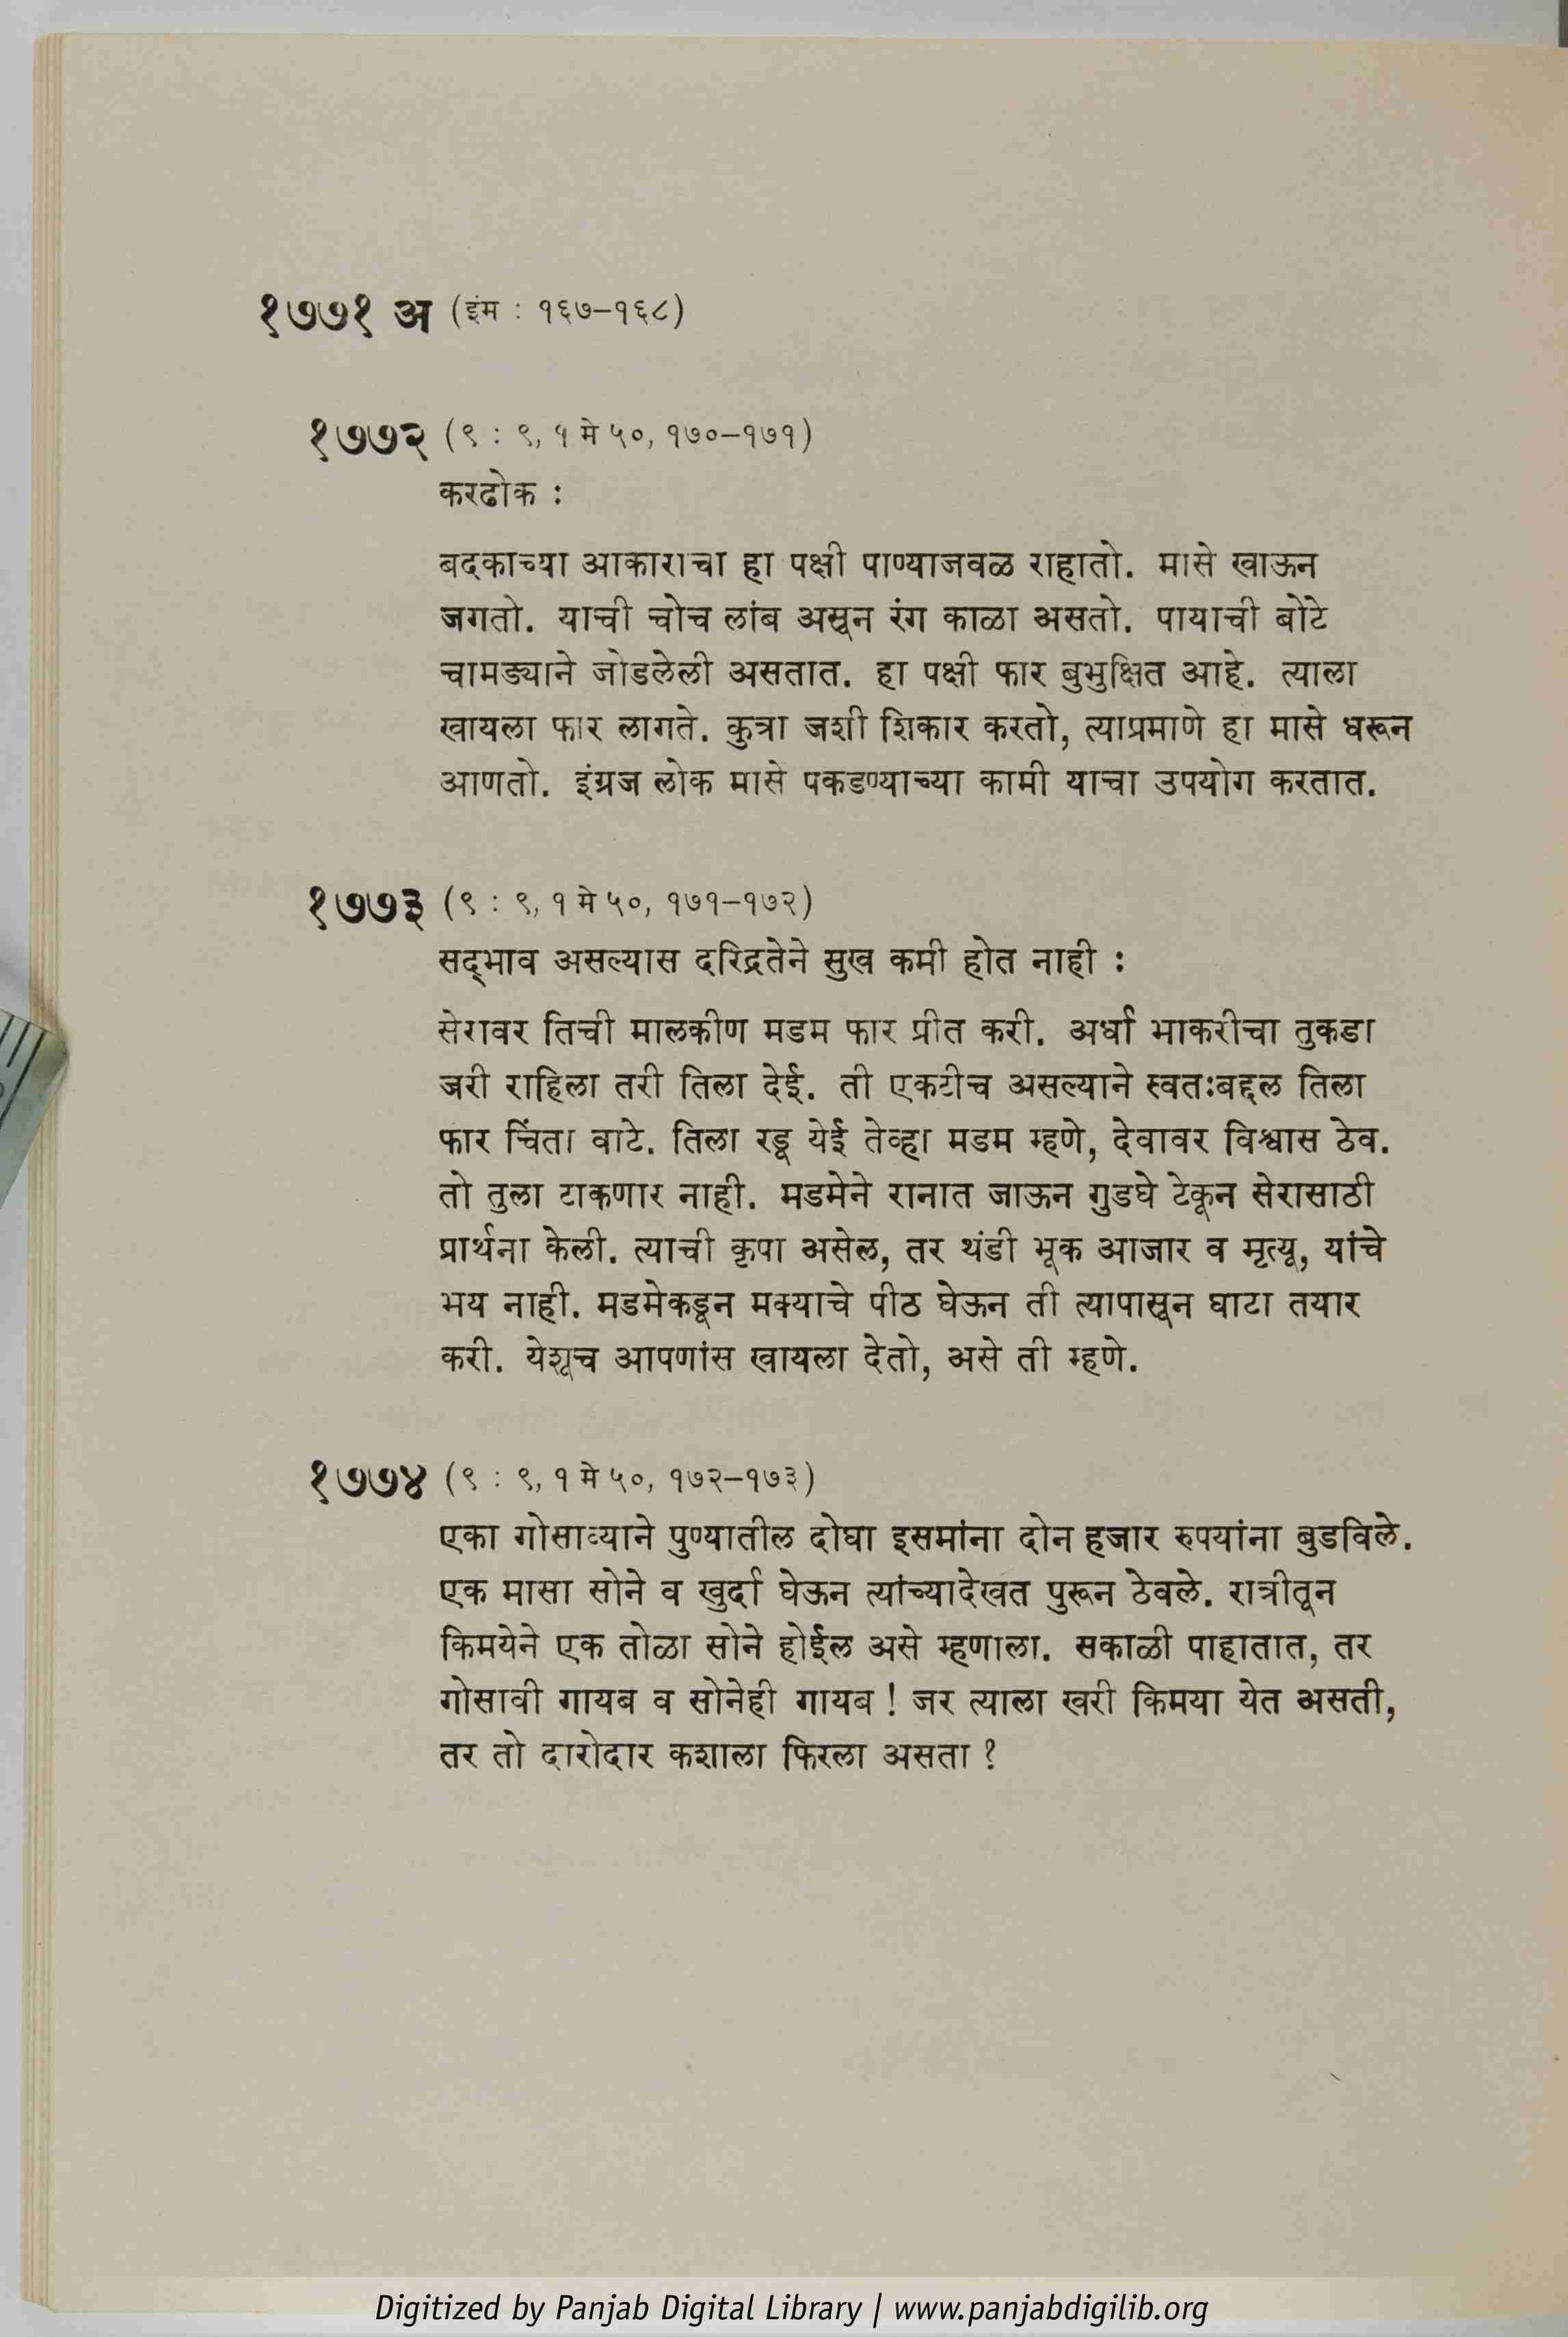 १७७१ अ (इंम : १६७–१६८)
१७७२ (९ : ९, ५ मे ५०, १७०–१७१)
करढोक :
बदकाच्या आकाराचा हा पक्षी पाण्याजवळ राहातो. मासे खाऊन
जगतो. याची चोच लांब असून रंग काळा असतो. पायाची बोटे
चामड्याने जोडलेली असतात. हा पक्षी फार बुभुक्षित आहे. त्याला
खायला फार लागते. कुत्रा जशी शिकार करतो, त्याप्रमाणे हा मासे धरून
आणतो. इंग्रज लोक मासे पकडण्याच्या कामी याचा उपयोग करतात.
१७७३ (९ : ९, १ मे ५०, १७१–१७२)
सद्‌भाव असल्यास दरिद्रतेने सुख कमी होत नाही :
सेरावर तिची मालकीण मडम फार प्रीत करी. अर्धा भाकरीचा तुकडा
जरी राहिला तरी तिला देई. ती एकटीच असल्याने स्वतःबद्दल तिला
फार चिंता वाटे. तिला रडू येई तेव्हा मडम म्हणे, देवावर विश्वास ठेव.
तो तुला टाकणार नाही. मडमेने रानात जाऊन गुडघे टेकून सेरासाठी
प्रार्थना केली. त्याची कृपा असेल, तर थंडी भूक आजार व मृत्यू, यांचे
भय नाही. मडमेकडून मक्याचे पीठ घेऊन ती त्यापासून घाटा तयार
करी. येशूच आपणांस खायला देतो, असे ती म्हणे.
१७७४ (९ : ९, १ मे ५०, १७२–१७३)
एका गोसाव्याने पुण्यातील दोघा इसमांना दोन हजार रुपयांना बुडविले.
एक मासा सोने व खुर्दा घेऊन त्यांच्यादेखत पुरून ठेवले. रात्रीतून
किमयेने एक तोळा सोने होईल असे म्हणाला. सकाळी पाहातात, तर
गोसावी गायब व सोनेही गायब ! जर त्याला खरी किमया येत असती,
तर तो दारोदार कशाला फिरला असता ?
Digitized by Panjab Digital Library | www.panjabdigilib.org